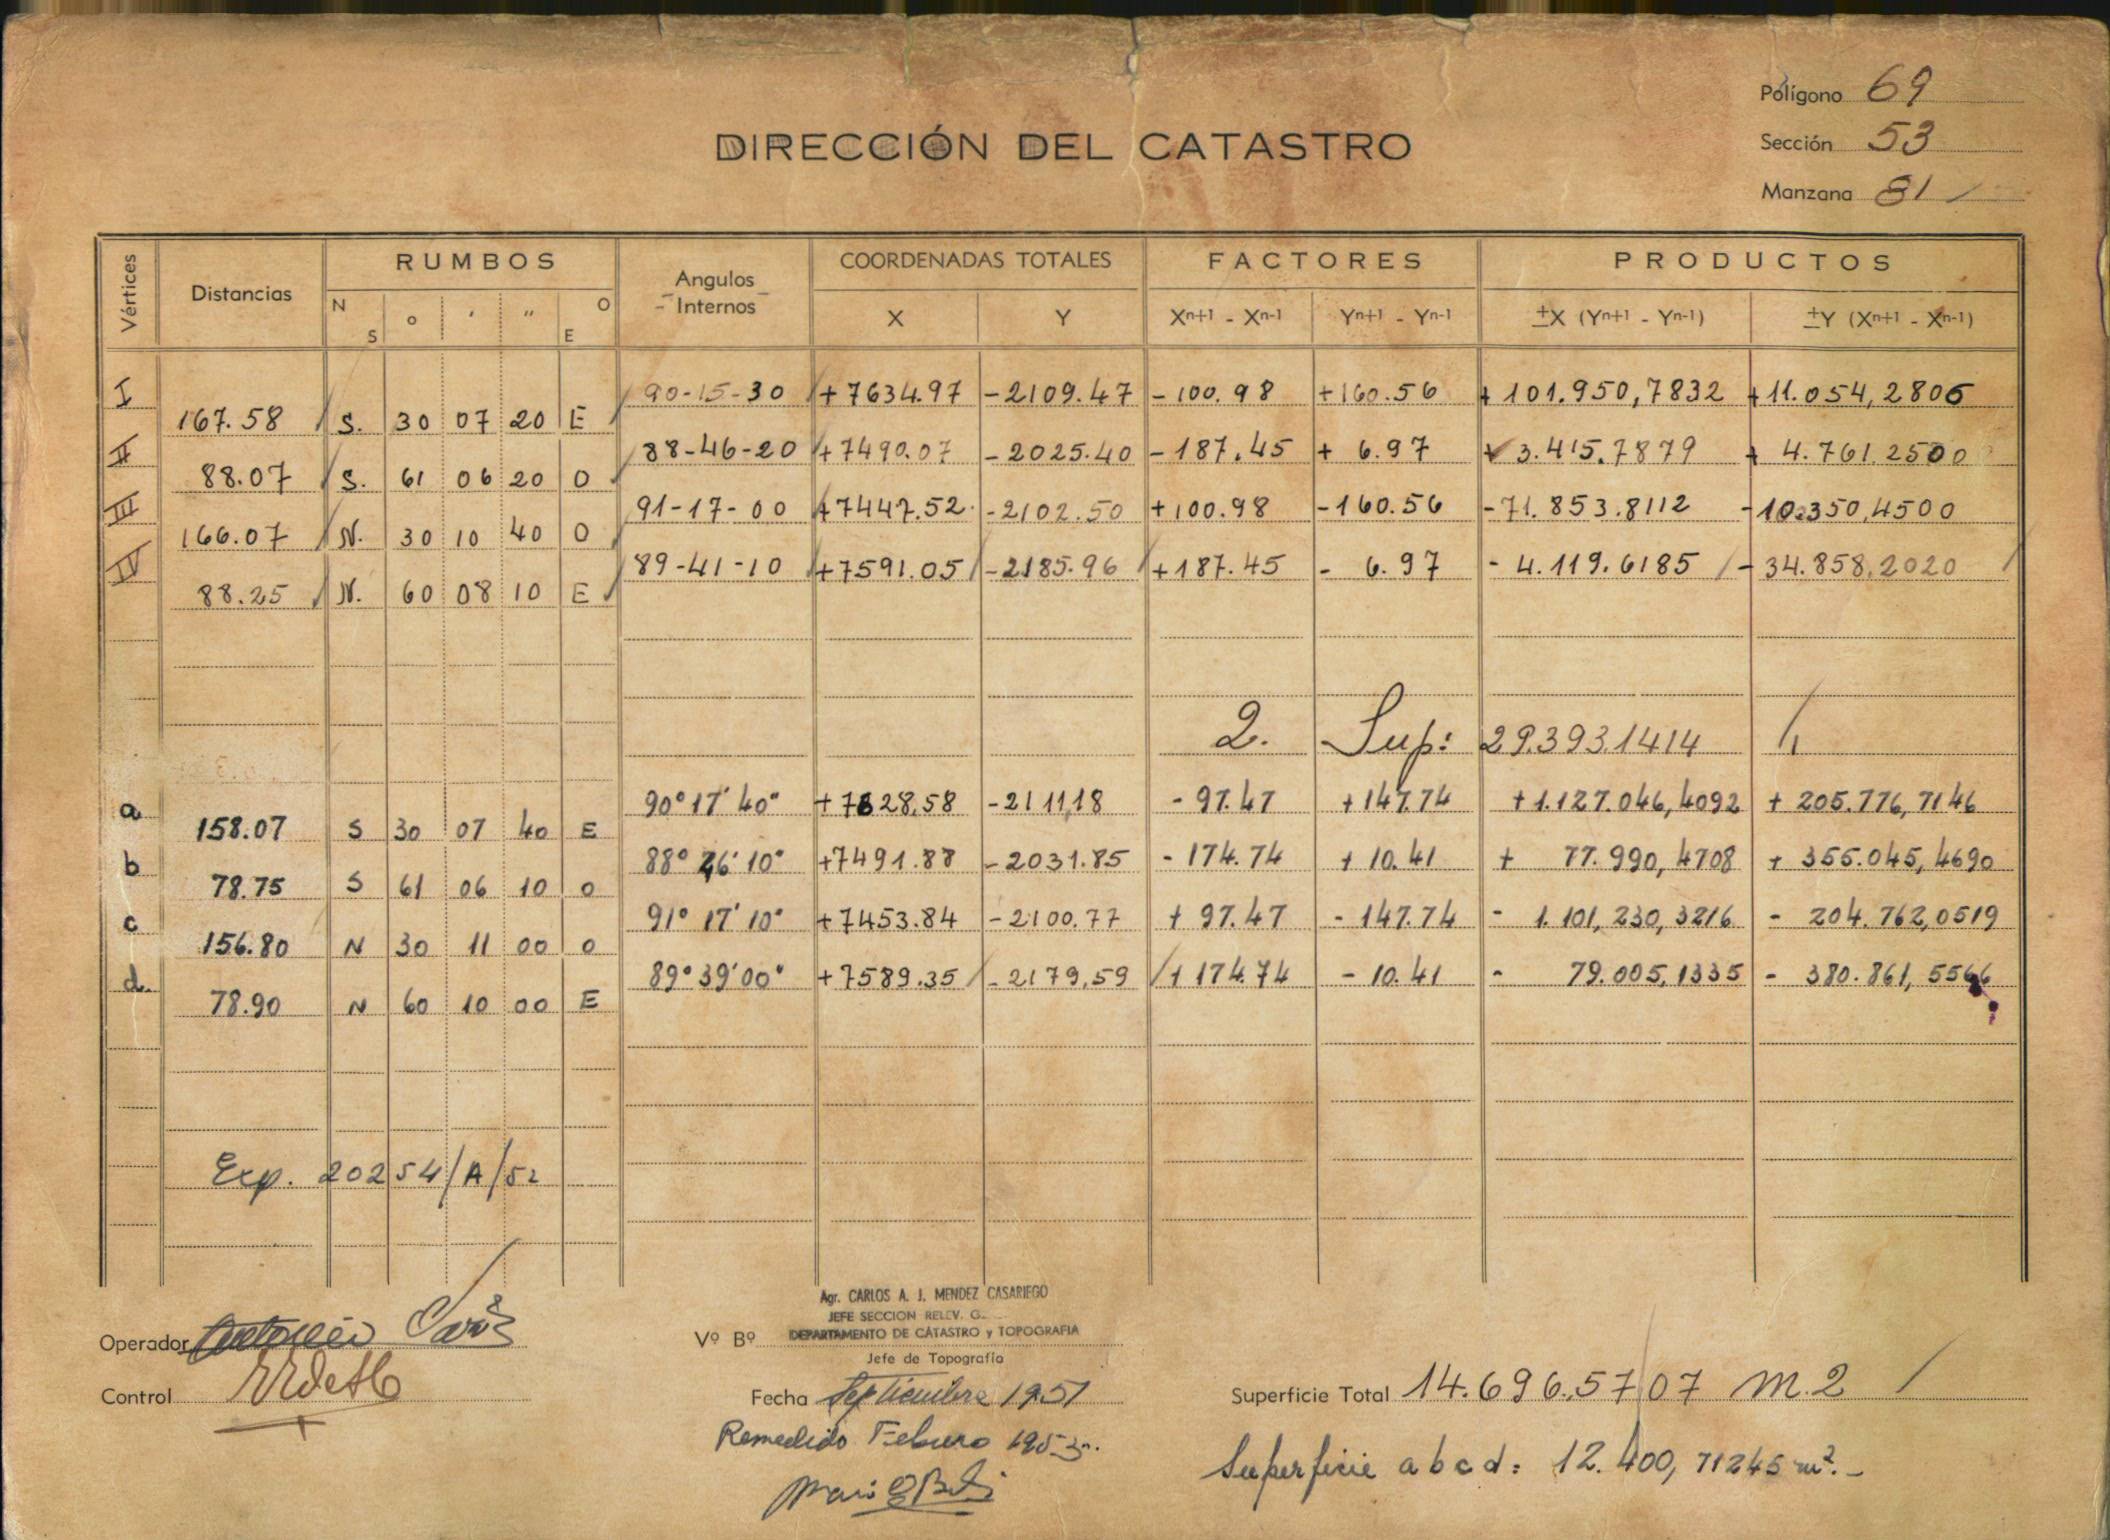 Polígono 69
DIRECCIÓN DEL CATASTRO
Sección 53
Manzana 81
Vértices Distancias RUMBOS Angulos Internos COORDENADAS TOTALES FACTORES PRODUCTOS
N S o ' " O E X Y Xn+1 - Xn-1 Yn+1 - Yn-1 ±X (Yn+1 - Yn-1) ±Y (Xn+1 - Xn-1)
I 90-15-30 +7634.97 -2109.47 -100.98 +160.56 +101.950,7832 +11.054,2806
167.58 S. 30 07 20 E
II 88-46-20 +7490.07 -2025.40 -187.45 + 6.97 + 3.415.7879 + 4.761.2500
88.07 S. 61 06 20 O
III 91-17-00 +7447.52 -2102.50 +100.98 -160.56 -71.853.8112 -10.350,4500
166.07 N. 30 10 40 O
IV 89-41-10 +7591.05 -2185.96 +187.45 - 6.97 - 4.119.6185 -34.858.2020
88.25 N. 60 08 10 E
2. Sup: 29.393.1414
a 90° 17' 40" +7628,58 -2111,18 - 97.47 +147.74 +1.127.046,4092 + 205.776,7146
158.07 S 30 07 40 E
b 88° 46' 10" +7491.88 -2031.85 - 174.74 + 10.41 + 77.990,4708 + 355.045,4690
78.75 S 61 06 10 O
c 91° 17' 10" +7453.84 -2100.77 + 97.47 - 147.74 - 1.101,230,3216 - 204.762,0519
156.80 N 30 11 00 O
d 89° 39' 00" +7589.35 -2179,59 +174.74 - 10.41 - 79.005,1335 - 380.861,5566
78.90 N 60 10 00 E
Exp. 20254/A/52
Agr. CARLOS A. J. MENDEZ CASARIEGO
JEFE SECCION RELEV. G.
Operador
Vº Bº DEPARTAMENTO DE CATASTRO y TOPOGRAFIA
Jefe de Topografía
Control
Fecha Septiembre 1951
Superficie Total 14.696.5707 m.2
Remedido Febrero 1953
Superficie a b c d: 12.400,71245 m².-